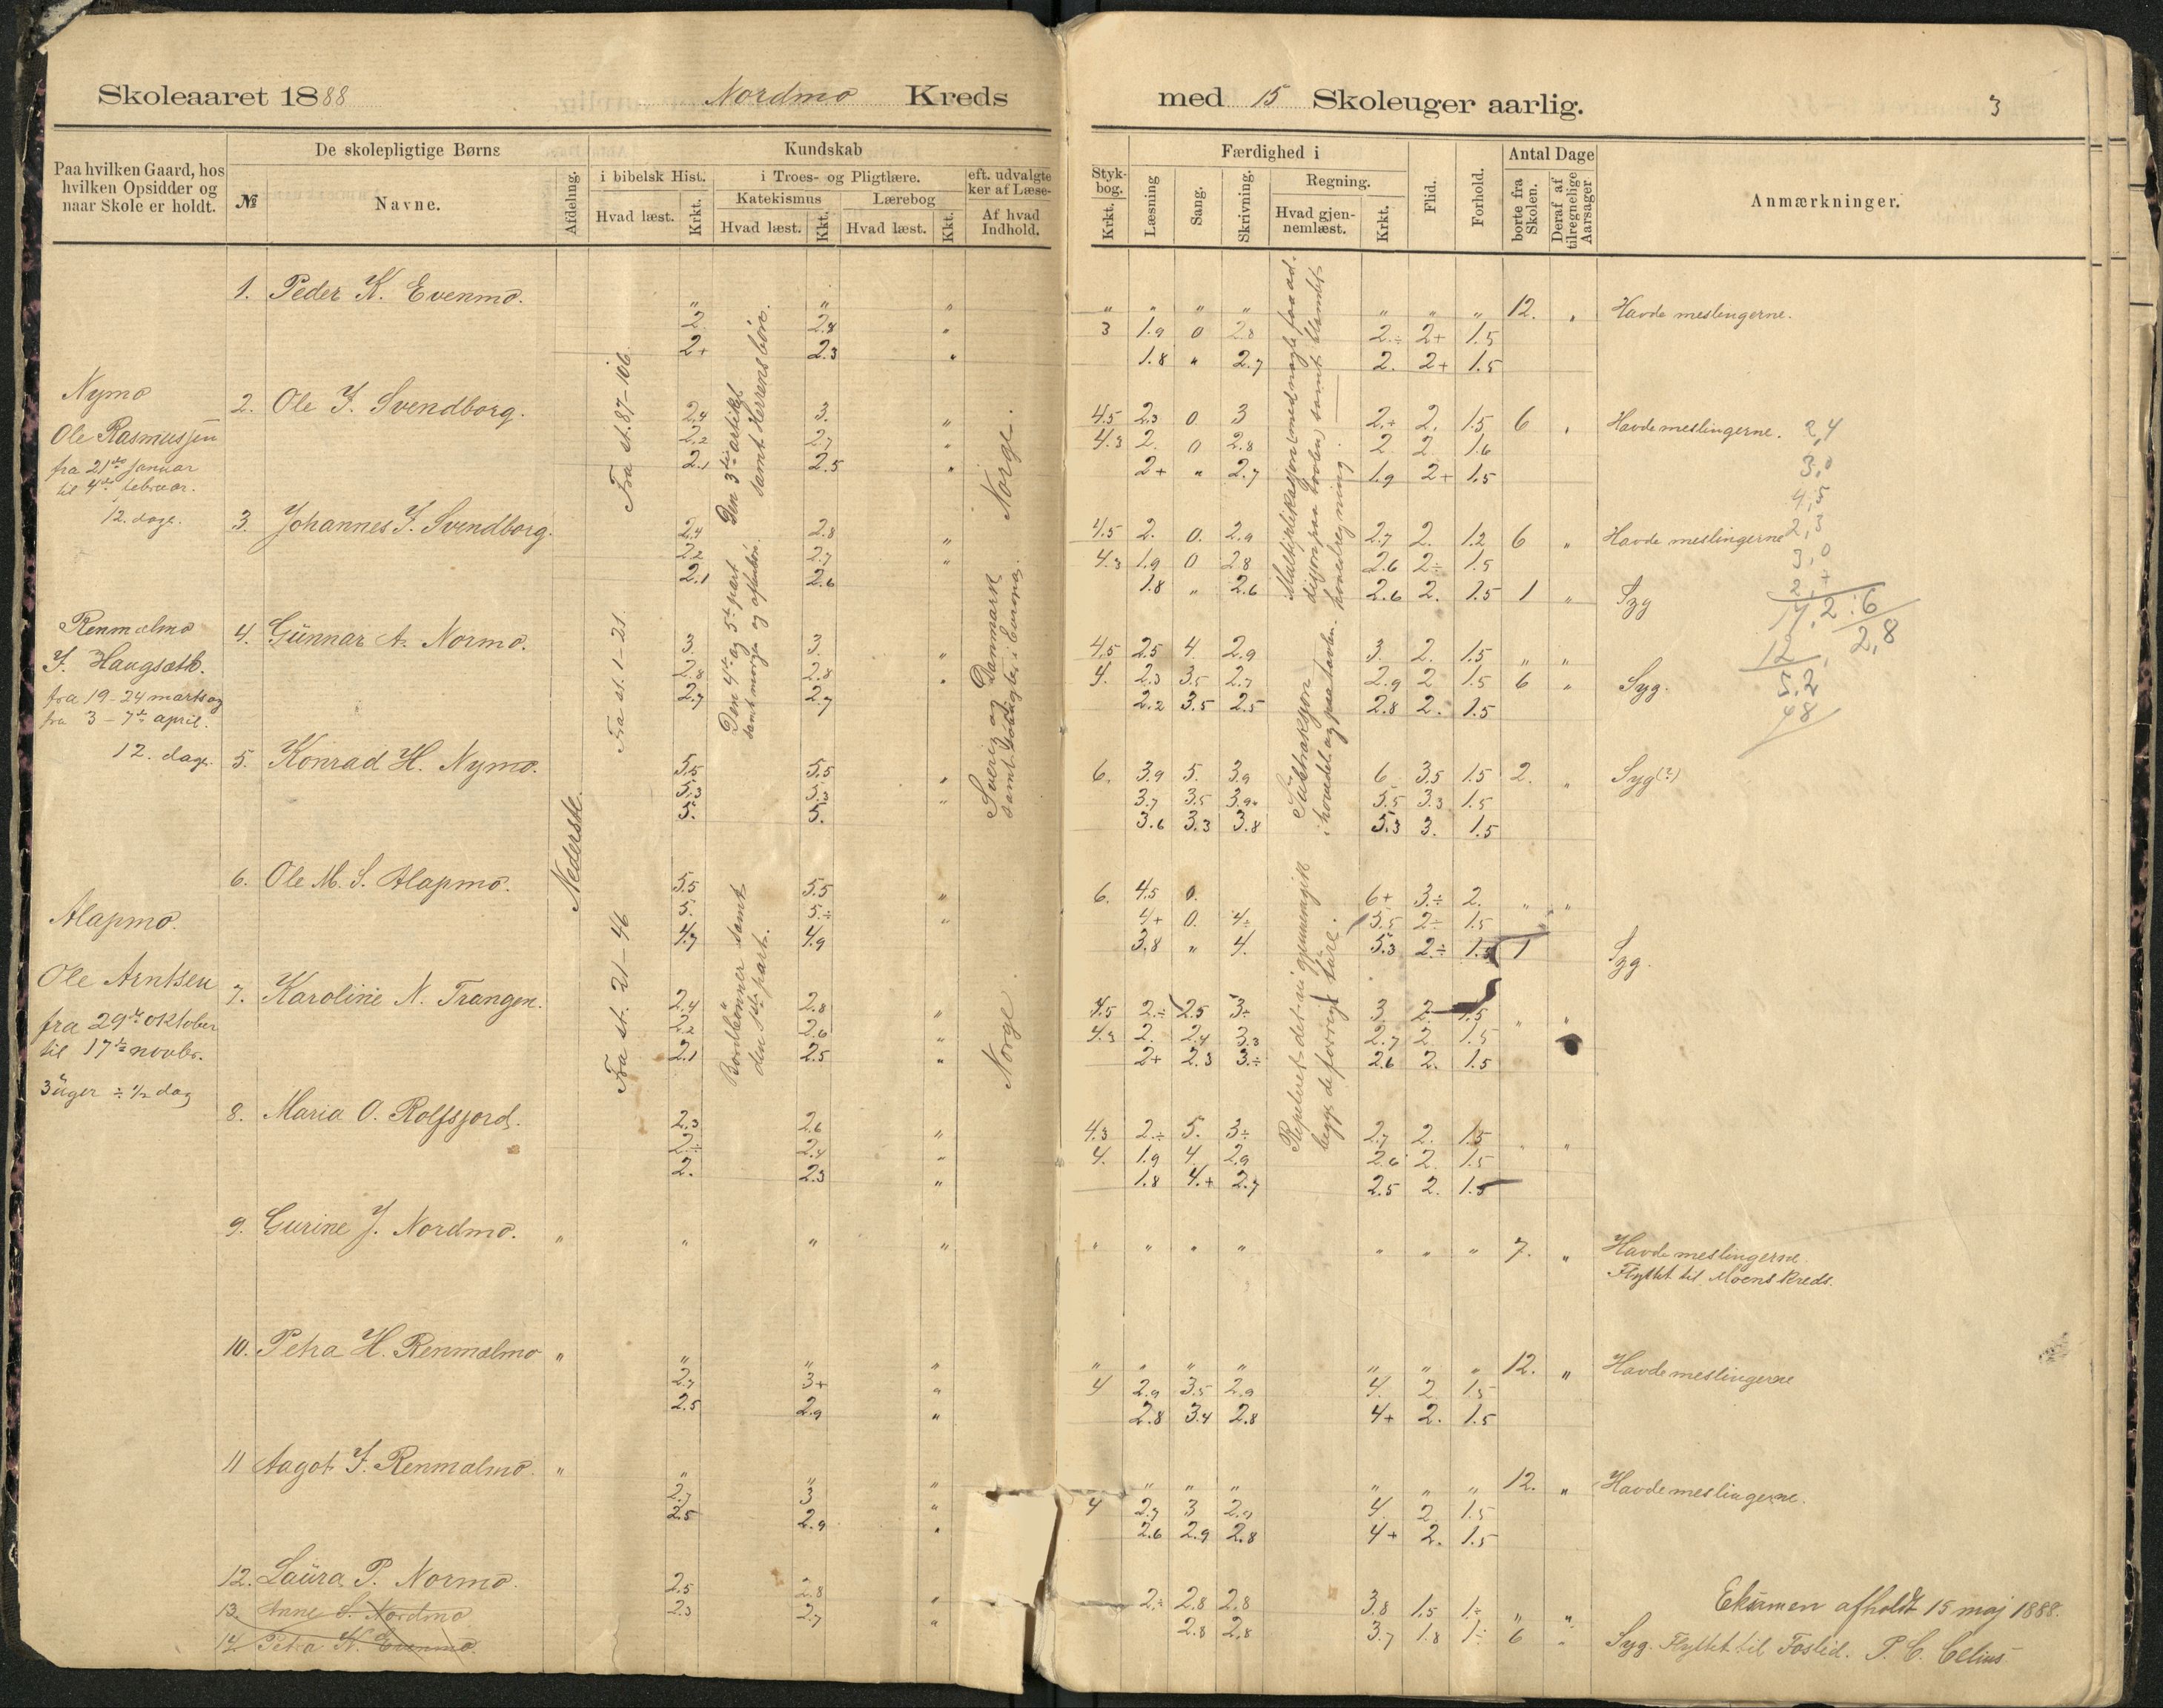 Skoleaaret 1888 Nordmo Kreds
med 15 Skoleuger aarlig.
3
Paa hvilken Gaard, hos hvilken Opsidder og naar Skole er holdt.
De skolepligtige Børns
№
Navne.
Afdeling.
Kundskab
i bibelsk Hist.
Hvad læst.
Krkt.
i Troes- og Pligtlære.
Katekismus
Hvad læst.
Kkt.
Lærebog
Hvad læst.
Kkt.
eft. udvalgte
ker af Læse-
Af hvad Indhold.
Styk-
bog.
Krkt.
Færdighed i
Læsning
Sang.
Skrivning.
Regning.
Hvad gjen-
nemlæst.
Krkt.
Flid.
Forhold.
Antal Dage
borte fra Skolen.
Deraf af tilregnelige Aarsager
Anmærkninger.
Nymo
Ole Rasmussen
fra 21de januar
til 4de februar.
12. dage.
Renmælmo
J. Haugsæth.
fra 19-24 marts og
fra 3-7de april.
12. dage.
Alapmo.
Ole Arntsen
fra 29de oktober
til 17de novbr.
3 uger ÷ 1/2 dag
Nederste.
Fra st. 87-106.
Fra st. 1-21.
Fra st. 21-46
Den 3die artikel
samt Herrens bøn.
Den 4de og 5te part
samt morgen og aftenbøn.
Bordbønner samt
den 1ste part.
Norge.
Sverig og Danmark
samt
Norge.
Multiplikasjon
hovedregning.
Subtraksjon
i hovedet og paa tavlen.
Repeteret det de i gjennemgik
begge de forrige ture.
1. Peder K. Evenmo. " " " " " " " " " " 12. " Havde meslingerne.
2. 2.4 " 3 1.9 0 2.8 2.÷ 2+ 1.5
2+ 2.3 " 1.8 " 2.7 2. 2+ 1.5
2. Ole J. Svendborg. 2.4 3. " 4.5 2.3 0 3 2.+ 2. 1.5 6 " Havde meslingerne.
2.2 2.7 " 4.3 2. 0 2.8 2. 2 1.6
2.1 2.5 " 2+ " 2.7 1.9 2+ 1.5
3. Johannes J. Svendborg. 2.4 2.8 " 4.5 2. 0. 2.9 2.7 2. 1.2 6 " Havde meslingerne
2.2 2.7 " 4.3 1.9 0 2.8 2.6 2÷ 1.5
2.1 2.6 1.8 " 2.6 2.6 2. 1.5 1 " Syg
4. Gunnar A. Normo. 3. 3. " 4.5 2.5 4. 2.9 3. 2. 1.5 " "
2.8 2.8 " 4. 2.3 3.5 2.7 2.9 2 1.5 6 " Syg.
2.7 2.7 2.2 3.5 2.5 2.8 2. 1.5
5. Konrad H. Nymo. 5.5 5.5 " 6. 3.9 5. 3.9 6 3.5 1.5 2. " Syg (?)
5.3 5.3 " 3.7 3.5 3.9. 5.5 3.3 1.5
5. 5. 3.6 3.3 3.8 5.3 3. 1.5
6. Ole M. S. Alapmo. 5.5 5.5 " 6. 4.5 0. 6+ 3.÷ 2. " "
5. 5.÷ " 4+ 0. 4÷ 5.5 2÷ 1.5
4.7 4.9 3.8 " 4. 5.3 2.÷ 1.5 1 Syg.
7. Karoline N. Trangen. 2.4 2.8 " 4.5 2.÷ 2.5 3÷ 3. 2. 1.5 " "
2.2 2.6 " 4.3 2. 2.4 3.3 2.7 2 1.5
2.1 2.5 " 2+ 2.3 3.÷ 2.6 2. 1.5
8. Maria O. Rolfsjord. 2.3 2.6 " 4.3 2.÷ 5. 3÷ 2.7 2. 1.5 " "
2.÷ 2.4 " 4. 1.9 4. 2.9 2.6 2. 1.5
2. 2.3 " 1.8 4.+ 2.7 2.5 2. 1.5
9. Gurine J. Nordmo. " " " " " " " " " " " 7. " Havde meslingerne.
Flyttet til Moens kreds.
10. Petra H. Renmælmo " " " " " " " " " " " 12. " Havde meslingerne
2.7 3+ " 4 2.9 3.5 2.9 4. 2 1.5
2.5 2.9 " 2.8 3.4 2.8 4+ 2. 1.5
11 Aagot J. Renmælmo. " " " " " " " " " " 12. " Havde meslingerne.
2.7 3 " 4 2.7 3 2.9 4. 2 1.5
2.5 2.9 " 2.6 2.9 2.8 4+ 2. 1.5
12. Laura P. Normo. 2.5 2.8 " 2.÷ 2.8 2.8 3.8 1.5 1÷ " " Eksamen afholdt 15 maj 1888.
13. Anne S. Nordmo 2.3 2.7 " 2.8 2.8 3.7 1.8 1÷ 6 " Syg. Flyttet til Foslid. P. C. Celius
14. Petra K. Evenmo.
2,4
3,0
4,5
2,3
3,0
17,2 : 6
12 2,8
5,2
48